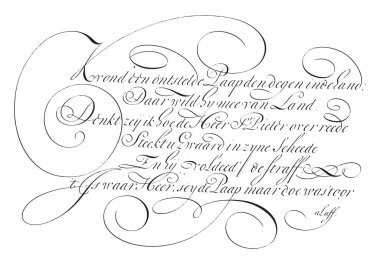 K vond een ontstelde Paap den degen in de hand:
Daar wild hy mee van Land.
Denkt zey ik hoe de Heer S. Pieter over reede
Steekt u Zwaard in zyne Scheede
En hy voldeed de straff
t Is waar Heer, sey de Paap maar doe was t oor
al aff.